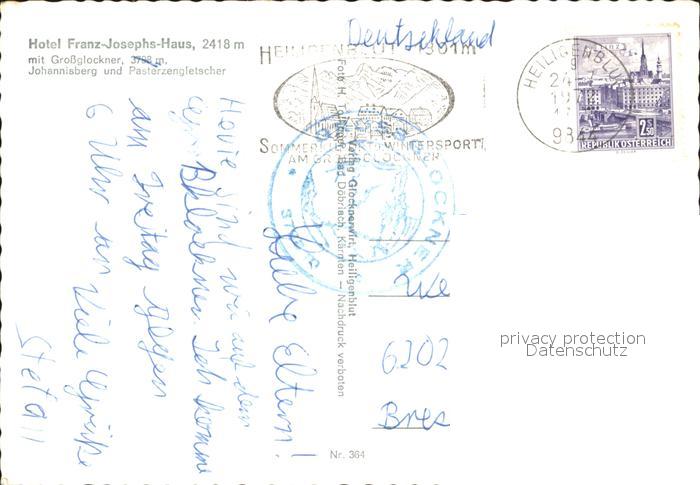 Hotel Franz-Josephs-Haus, 2418 m
mit Großglockner, 3798 m,
Johannisberg und Pasterzengletscher
Deutschland
HEILIGENBLUT 1301m
SOMMERFRISCHE WINTERSPORT
AM GROSSGLOCKNER
HEILIGENBLUT
9844
LINZ
2.50
REPUBLIK ÖSTERREICH
Liebe Eltern!
Heute sind wir auf dem
Ich komme
am Freitag gegen
6 Uhr an Viele Grüße
Stefan
Verlag Glocknerwirt, Heiligenblut
Bad Döbriach, Kärnten – Nachdruck verboten
GLOCKNER
6202
Bres
privacy protection
Datenschutz
Nr. 364